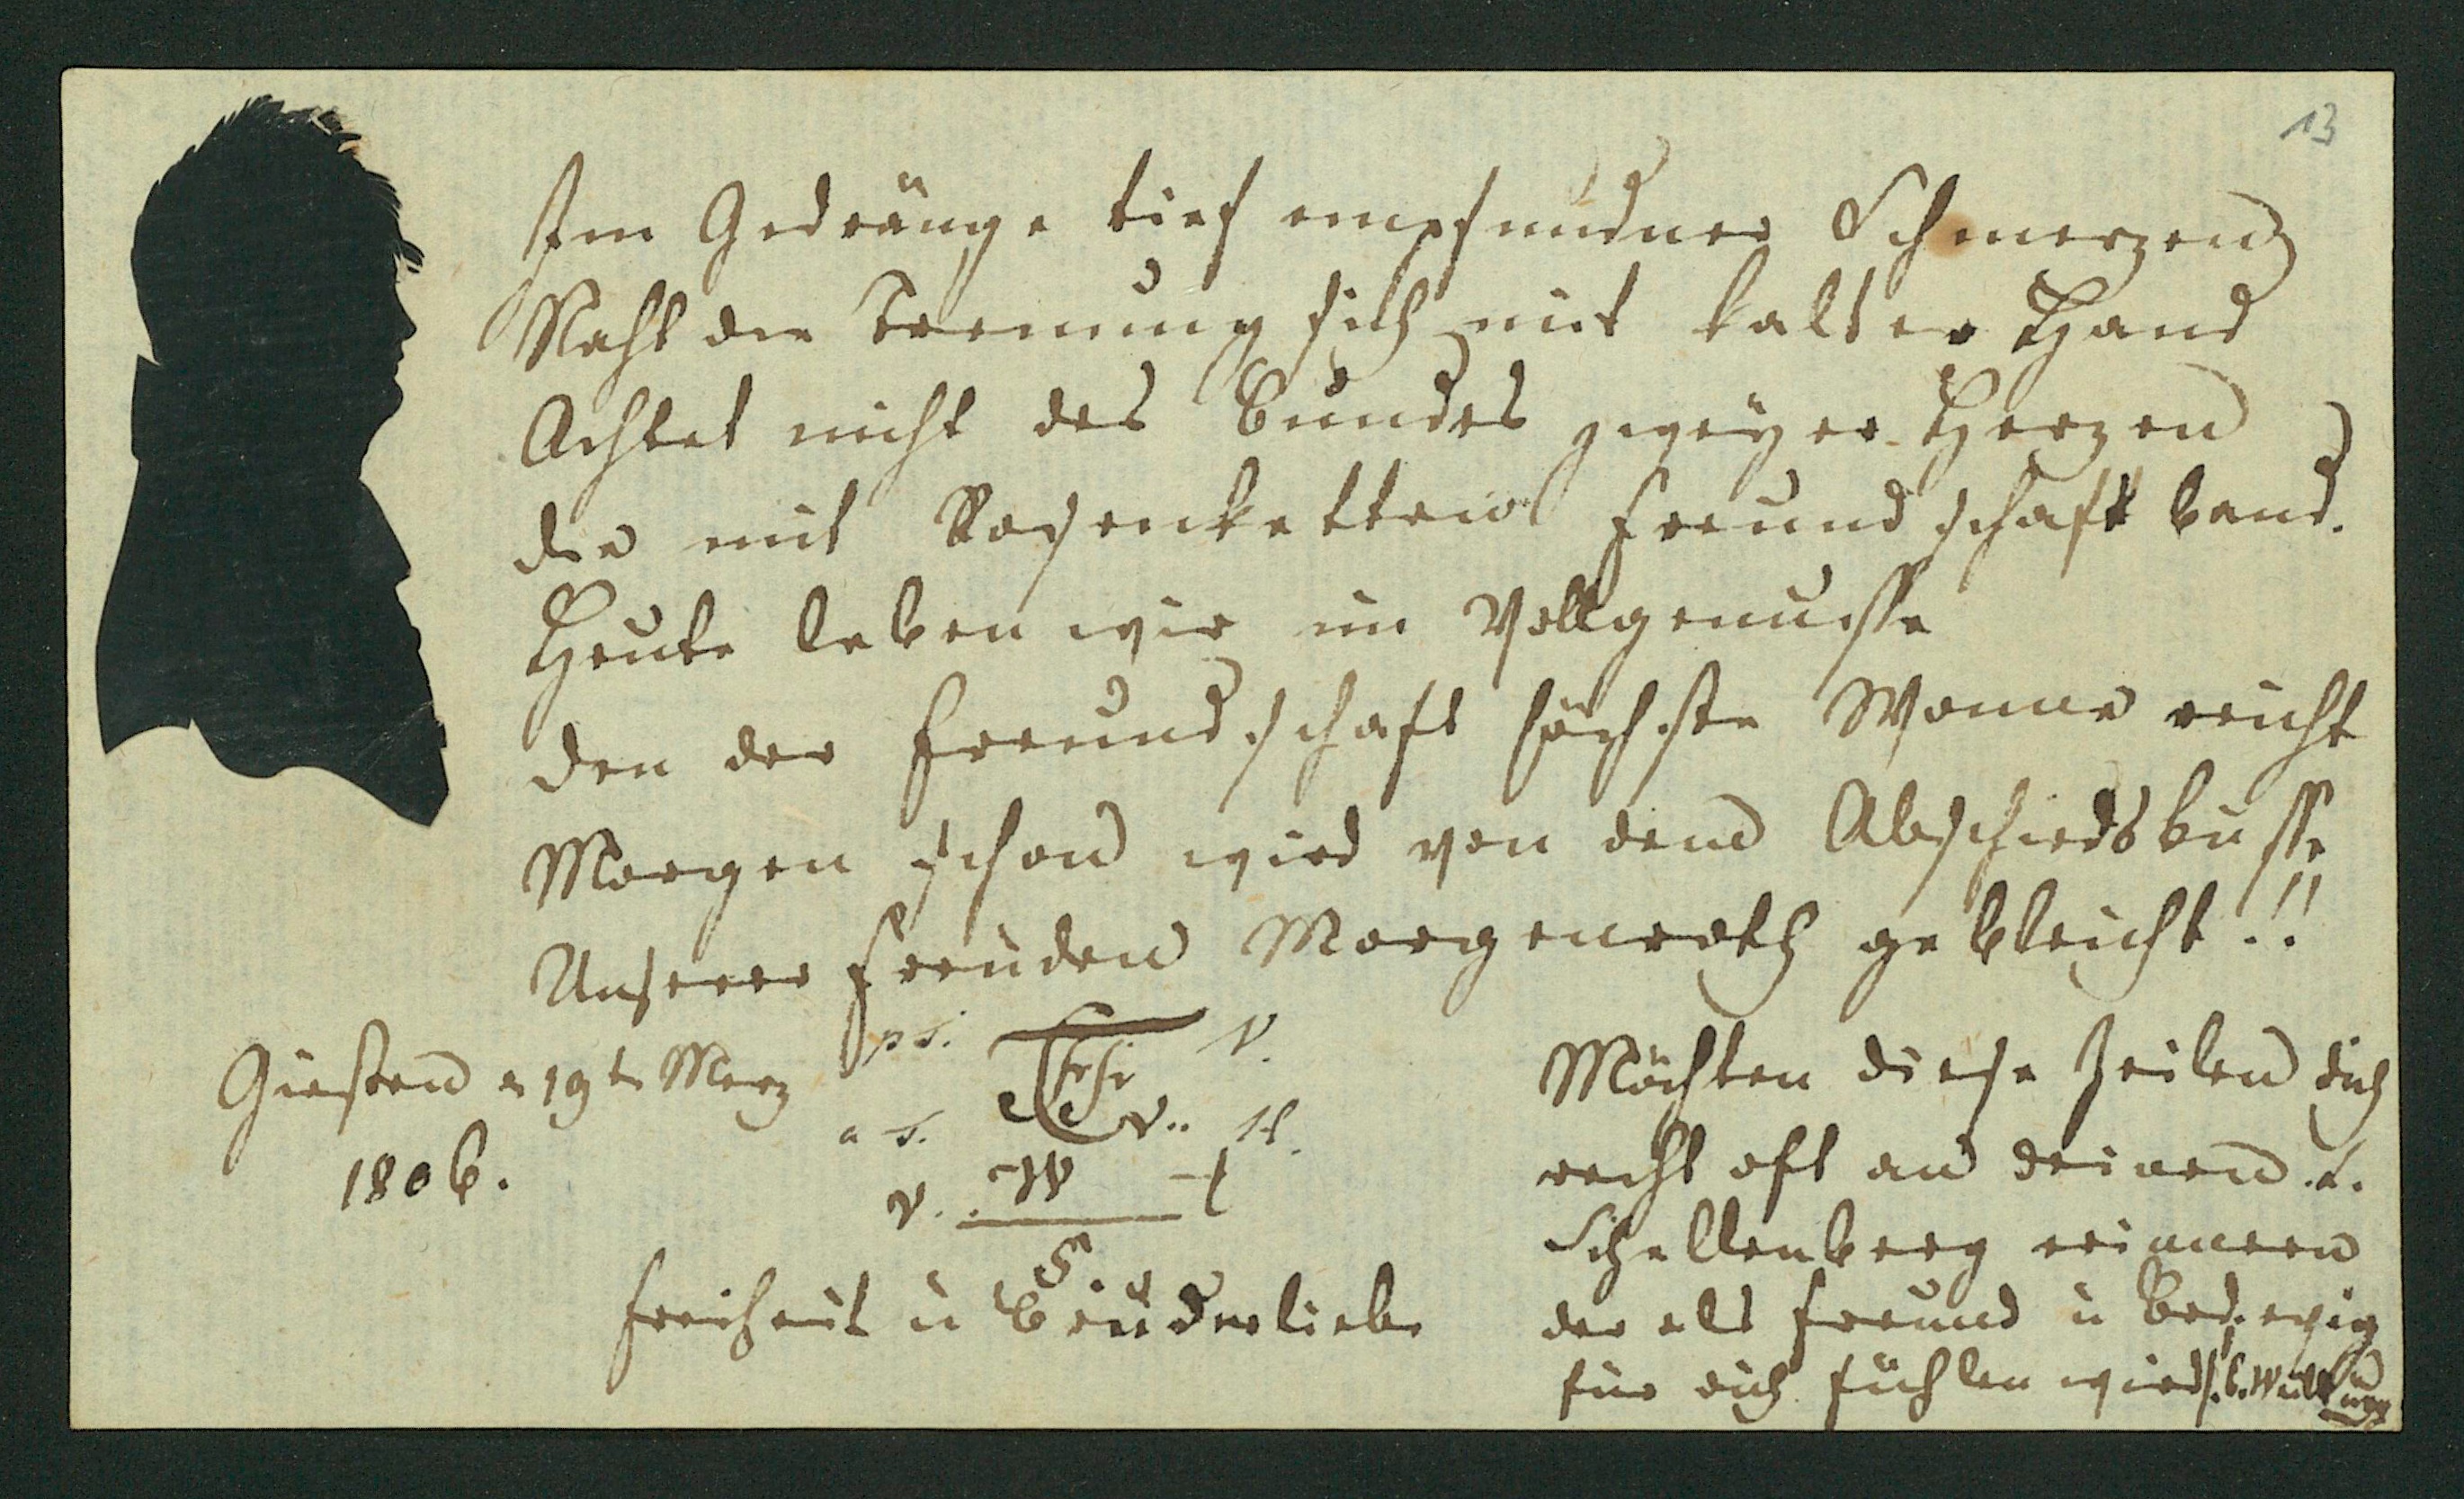 13
Im Gedränge tief empfundner Schmerzen
Naht die Trennung sich mit kalter Hand
Achtet nicht des Bundes zweyer Herzen
die mit Rosenketten Freundschaft band.
Heute leben wir im Vollgenusse
den der Freundschaft höchste Wonne reicht
Morgen schon wird von dem Abschiedskusse
Unserer Freuden Morgenroth gebleicht!!
Giesen 19t Merz
1806.
Freiheit u Bruderliebe
Möchten diese Zeilen dich
recht oft an deinen L.
Schellenberg erinnern
der als Freund u Brd. ewig
für dich fühlen wird